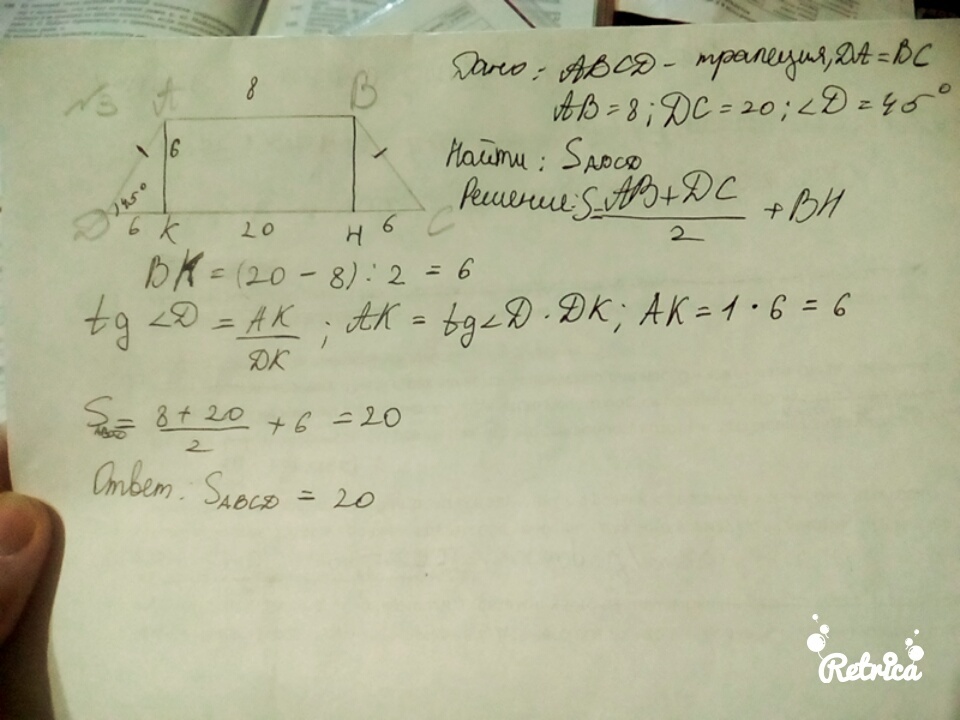 №3
A 8 B
6
45°
D 6 K 20 H 6 C
Дано: ABCD - трапеция, DA = BC
AB = 8; DC = 20; ∠D = 45°
Найти: SABCD
Решение: S = (AB + DC)/2 + BH
BK = (20 - 8) : 2 = 6
tg ∠D = AK/DK ; AK = tg ∠D · DK; AK = 1 · 6 = 6
SABCD = (8 + 20)/2 + 6 = 20
Ответ: SABCD = 20
Retrica